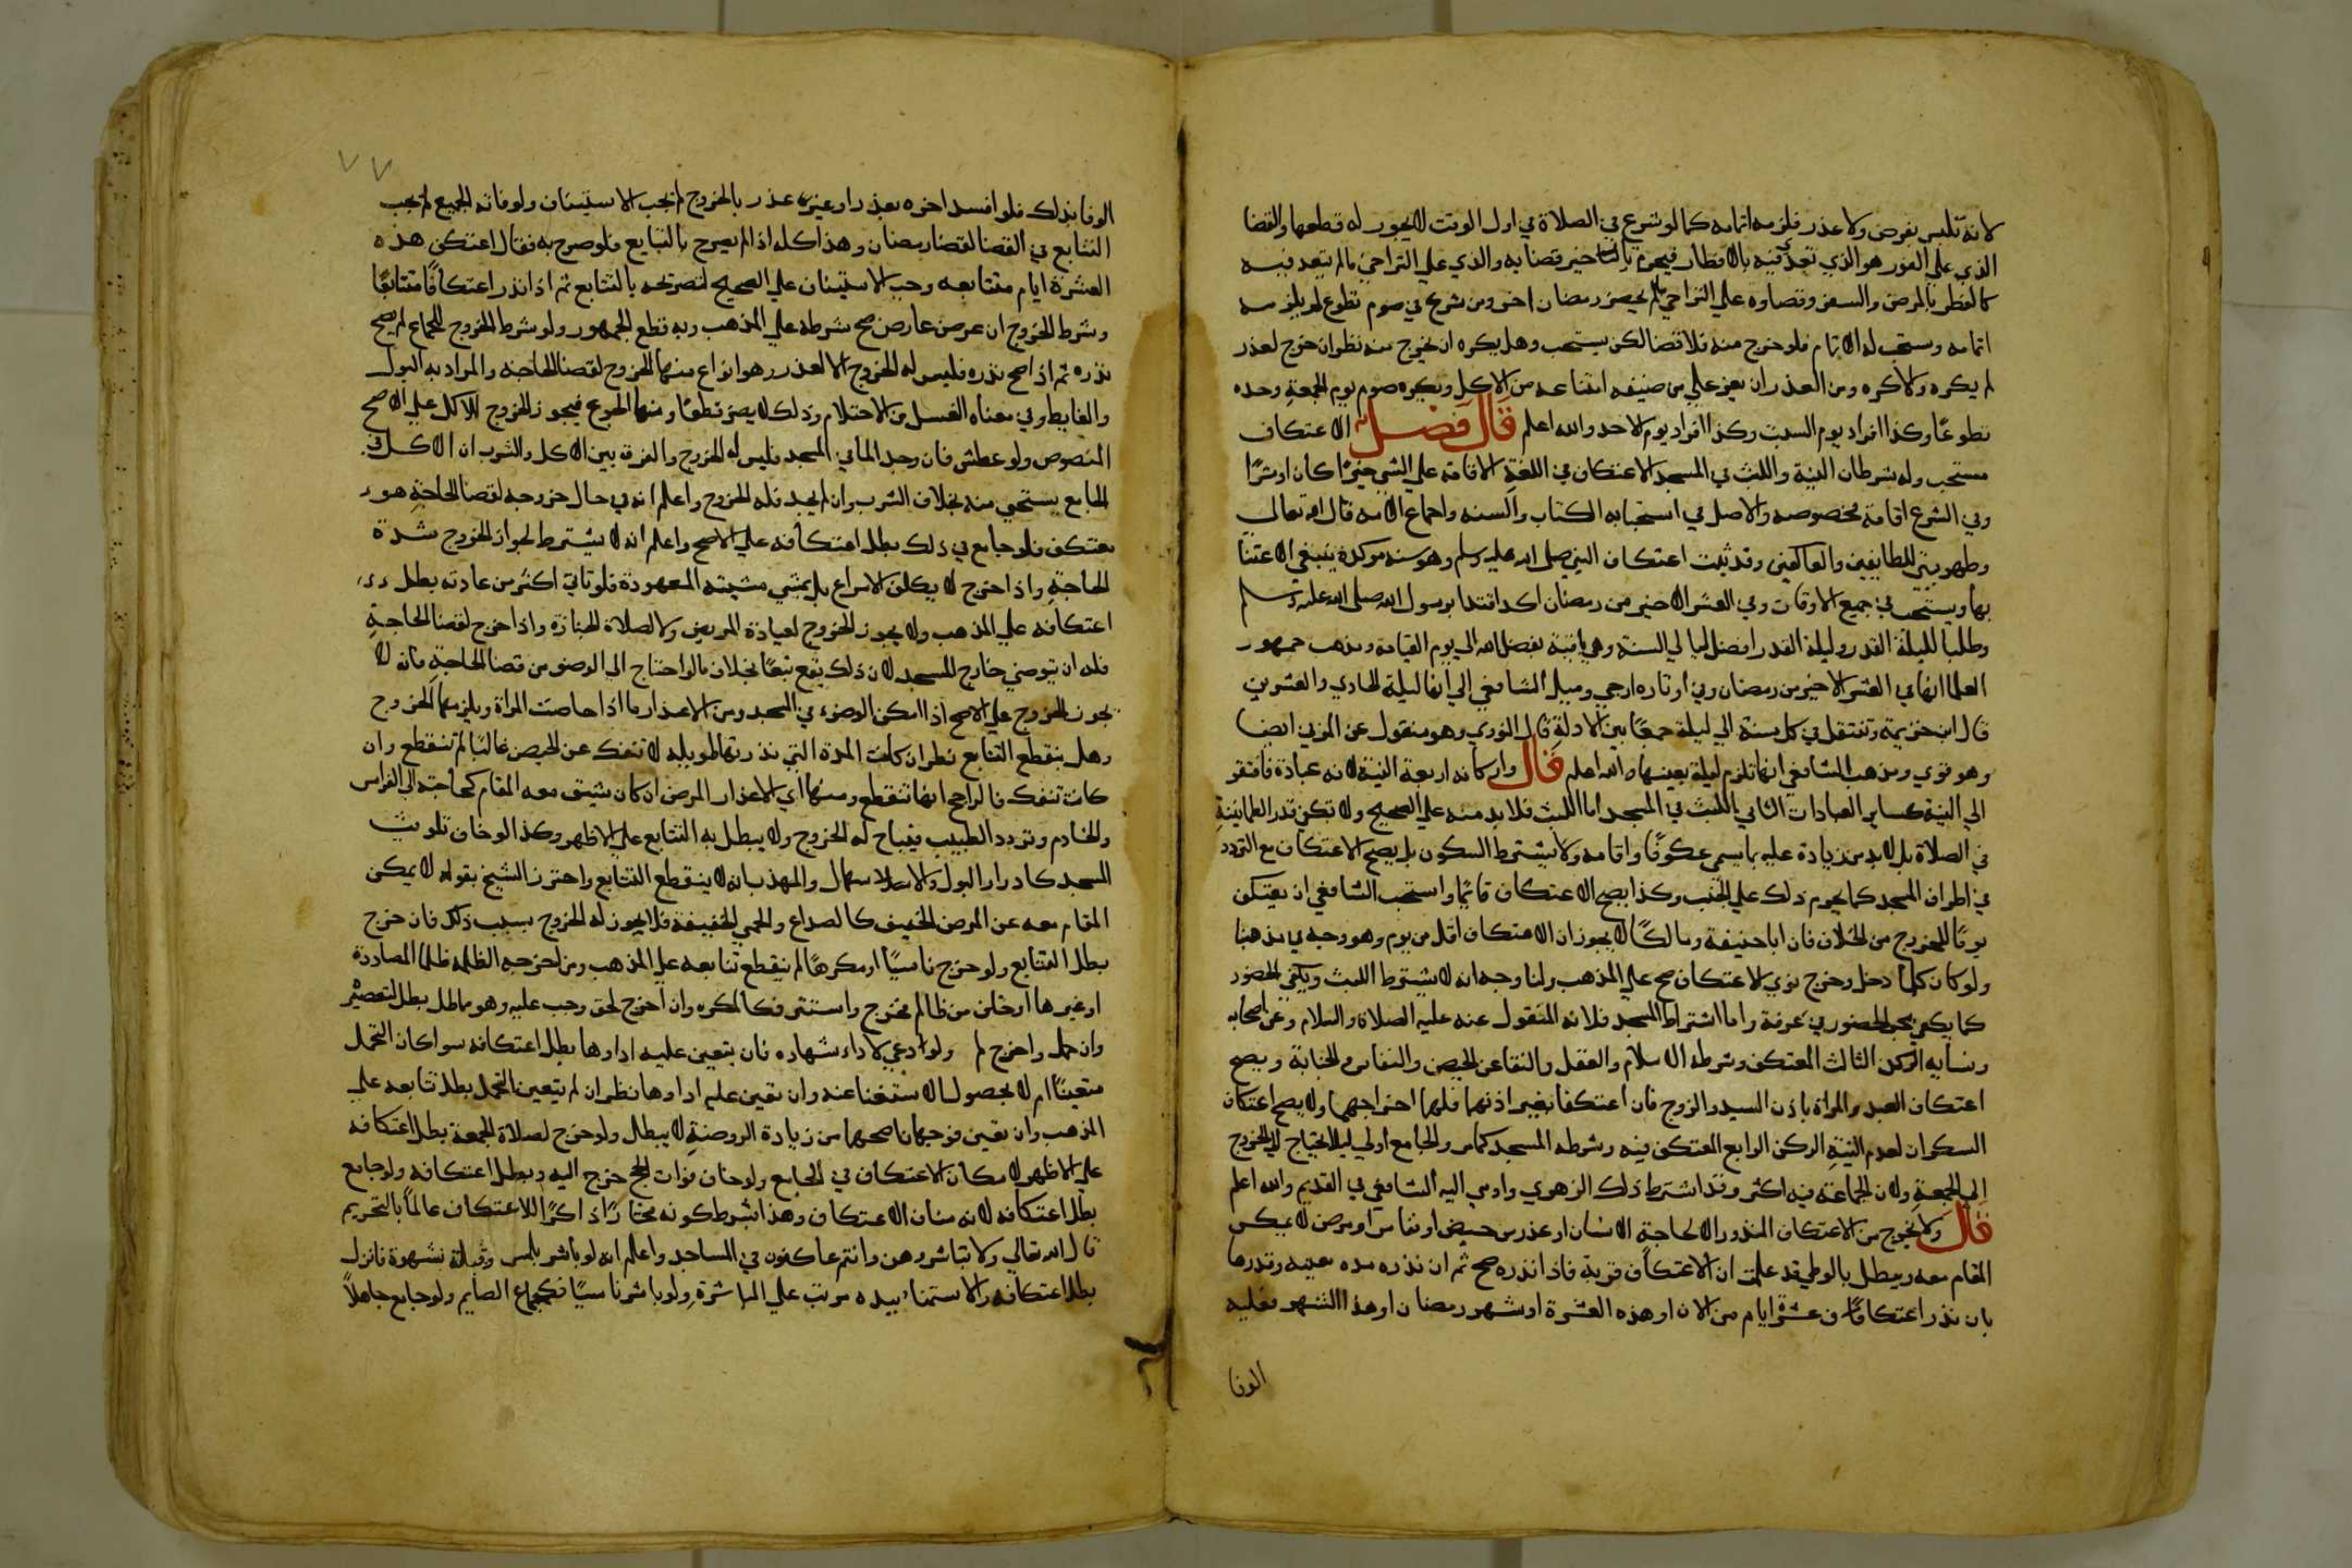 لانه تلبس بفرض ولا عذر فلزمه اتمامه كما لو شرع في الصلاة في اول الوقت لا يجوز له قطعها والقضا
الذي علي الفور هو الذي تعدي فيه بالافطار فيحرم تاخير قضايه والذي علي التراخي ما لم يتعد فيه
كالفطر بالمرض والسفر وقضاوه علي التراخي ما لم يحضر رمضان اخر ومن شرع في صوم تطوع لم يلزمه
اتمامه ويستحب له الاتمام فلو خرج منه فلا قضا لكن يستحب وهل يكره ان يخرج منه نظر ان خرج لعذر
لم يكره والا كره ومن العذر ان يعز علي من ضيفه امتناعه من الاكل ويكره صوم يوم الجمعة وحده
تطوعًا وكذا افراد يوم السبت وكذا افراد يوم الاحد والله اعلم قال فصل الاعتكاف
مستحب وله شرطان النية واللبث في المسجد الاعتكاف في اللغة الاقامة علي الشي خيرًا كان او شرًا
وفي الشرع اقامة مخصوصه والاصل في استحبابه الكتاب والسنه واجماع الامه قال الله تعالي
وطهر بيتي للطايفين والعاكفين وقد ثبت اعتكاف النبي صلي الله عليه وسلم وهو سنه موكدة ينبغي الاعتنا
بها ويستحب في جميع الاوقات وفي العشر الاخير من رمضان اكد اقتدا برسول الله صلي الله عليه وسلم
وطلبا لليلة القدر وليلة القدر افضل ليالي السنة وهي باقية بفضل الله الي يوم القيامة ومذهب جمهور
العلما انها في العشر الاخير من رمضان وفي اوتاره ارجي وميل الشافعي الي انها ليلة الحادي والعشرين
قال ابن خزيمة وتنتقل في كل سنة الي ليلة جمعًا بين الادلة قال النووي وهو منقول عن المزني ايضا
وهو قوي ومذهب الشافعي انها تلزم ليلة بعينها والله اعلم قال واركانه اربعة النية لانه عبادة فافتقر
الي النية كساير العبادات الثاني اللبث في المسجد اما اللبث فلا بد منه علي الصحيح ولا يكفي قدر الطمانينة
في الصلاة بل لا بد من زيادة عليه بما يسمي عكوفًا واقامه ولا يشترط السكون بل يصح الاعتكاف مع التردد
في اطراف المسجد كما يحرم ذلك علي الجنب وكذا يصح الاعتكاف قائمًا واستحب الشافعي ان يعتكف
يومًا للخروج من الخلاف فان ابا حنيفة ومالكًا لا يجوزان الاعتكاف اقل من يوم وهو وجه في مذهبنا
ولو كان كلما دخل وخرج نوي الاعتكاف صح علي المذهب ولنا وجه انه لا يشترط اللبث ويكفي الحضور
كما يكفي مجرد الحضور في عرفة واما اشتراط المسجد فلانه المنقول عنه عليه الصلاة والسلام وعن اصحابه
ونسايه الركن الثالث المعتكف وشرطه الاسلام والعقل والنقا عن الحيض والنفاس والجنابة ويصح
اعتكاف العبد والمراة باذن السيد والزوج فان اعتكفا بغير اذنهما فلهما اخراجهما ولا يصح اعتكاف
السكران لعدم النية الركن الرابع المعتكف فيه وشرطه المسجد كما مر والجامع اولي ليلا يحتاج الي الخروج
الي الجمعة ولان الجماعة فيه اكثر وقد اشترط ذلك الزهري واومي اليه الشافعي في القديم والله اعلم
قال ولا يخرج من الاعتكاف المنذور الا لحاجة الانسان او عذر من حيض او نفاس او مرض لا يمكن
المقام معه ويبطل بالوطي قد علمت ان الاعتكاف قربة فاذا نذره صح ثم ان نذره مده معينه وقدرها
بان نذر اعتكاف عشرة ايام من الان او هذه العشرة او شهر رمضان او هذا الشهر فعليه
الوفا
٧٧
الوفا بذلك فلو افسد اخره بعذر او غيره عذر بالخروج لم يجب الاستيناف ولو فاته الجميع لم يجب
التتابع في القضا لقضا رمضان وهذا كله اذا لم يصرح بالتتابع فلو صرح به فقال اعتكف هذه
العشرة ايام متتابعه وجب الاستيناف علي الصحيح لتصريحه بالتتابع ثم اذا نذر اعتكافًا متتابعًا
وشرط الخروج ان عرض عارض صح شرطه علي المذهب وبه قطع الجمهور ولو شرط الخروج للجماع لم يصح
نذره ثم اذا صح نذره فليس له الخروج الا لعذر وهو انواع منها الخروج لقضا الحاجة والمراد به البول
والغايط وفي معناه الغسل من الاحتلام وذلك لا يضر قطعًا ومنها الجوع فيجوز الخروج للاكل علي الاصح
المنصوص ولو عطش فان وجد الما في المسجد فليس له الخروج والفرق بين الاكل والشرب ان الاكل في
الجامع يستحي منه بخلاف الشرب وان لم يجد فله الخروج واعلم انه في حال خروجه لقضا الحاجة هو
معتكف فلو جامع في ذلك بطل اعتكافه علي الاصح واعلم انه لا يشترط لجواز الخروج شدة
الحاجة واذا خرج لا يكلف الاسراع بل يمشي مشيته المعهودة فلو تاني اكثر من عادته بطل
اعتكافه علي المذهب ولا يجوز الخروج لعيادة المريض ولا لصلاة الجنازة واذا خرج لقضا الحاجة
فله ان يتوضي خارج المسجد لان ذلك يقع تبعًا بخلاف ما لو احتاج الي الوضو من قضا الحاجة فانه لا
يجوز الخروج علي الاصح اذا امكن الوضوء في المسجد ومن الاعذار ما اذا حاضت المراة ويلزمها الخروج
وهل ينقطع التتابع نظر ان كانت المدة التي نذرتها طويله لا تنفك عن الحيض غالبًا لم تنقطع وان
كانت تنفك فالراجح انها تنقطع ومنها اي الاعذار المرض ان كان شيق معه المقام كحاجته الي الفراش
والخادم وتردد الطبيب فيباح له الخروج ولا يبطل به التتابع علي الاظهر وكذا لو خاف تلويث
المسجد كادرار البول والاسهال والمهذب انه لا ينقطع التتابع واحترز الشيخ بقوله لا يمكن
المقام معه عن المرض الخفيف كالصداع والحمي الخفيفة فلا يجوز له الخروج بسبب ذلك فان خرج
بطل التتابع ولو خرج ناسيًا او مكرهًا لم ينقطع تتابعه علي المذهب ومن اخرجه الظلمه ظلما لمصادرة
او غيرها او خاف من ظالم فخرج واستتر فكالمكره وان اخرج لحق وجب عليه وهو مماطل بطل لتقصيره
وان حمل واخرج لم ولو دعي لاداء شهاده فان يتعين عليه اداوها بطل اعتكافه سوا كان التحمل
متعينًا ام لا لحصول الاستغنا عنه وان تعين عليه اداوها نظر ان لم يتعين التحمل بطل تتابعه علي
المذهب وان تعين فوجهان اصحهما من زيادة الروضة لا يبطل ولو خرج لصلاة الجمعة بطل اعتكافه
علي الاظهر لامكان الاعتكاف في الجامع ولو خاف فوات الحج خرج اليه وبطل اعتكافه ولو جامع
بطل اعتكافه لانه مناف الاعتكاف وهذا بشرط كونه مختارًا ذاكرًا للاعتكاف عالمًا بالتحريم
قال الله تعالي ولا تباشروهن وانتم عاكفون في المساجد واعلم انه لو باشر بلمس وقبلة بشهوة فانزل
بطل اعتكافه والاستمناء بيده مرتب علي المباشرة ولو باشر ناسيًا فكجماع الصايم ولو جامع جاهلاً